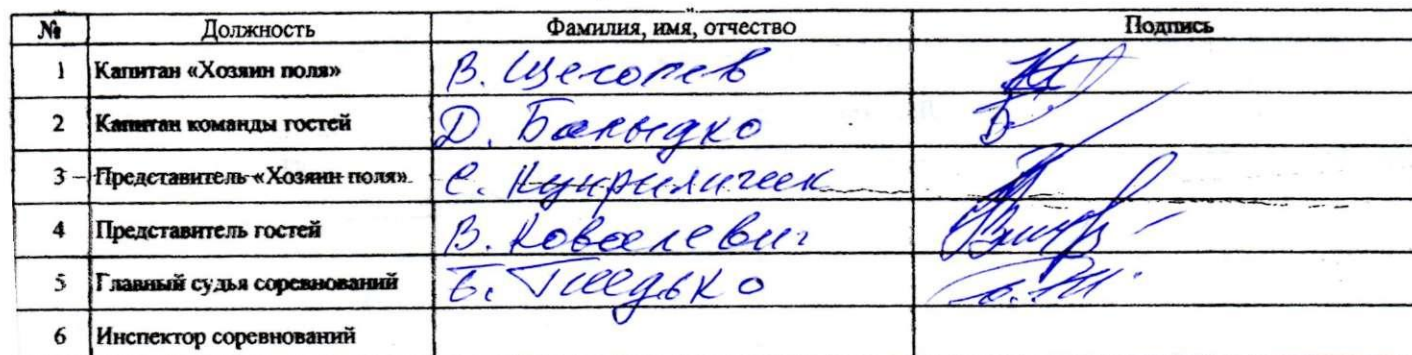 № Должность Фамилия, имя, отчество Подпись
1 Капитан «Хозяин поля» В. Щеголев
2 Капитан команды гостей Д. Балыдко
3 Представитель «Хозяин поля» С.
4 Представитель гостей В. Ковалевич
5 Главный судья соревнований Б.
6 Инспектор соревнований